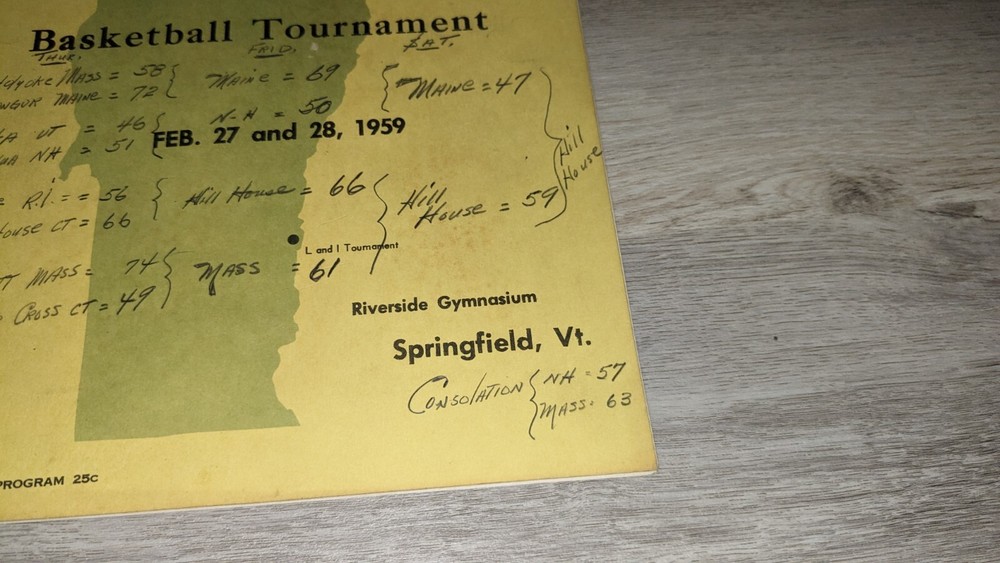 Basketball Tournament
THUR. FRID. SAT.
MASS = 58 MAINE = 69 MAINE = 47
MAINE = 72
VT = 46 N-H = 50
NH = 51
FEB. 27 and 28, 1959
Hill House
R.I. = = 56 Hill House = 66 Hill House = 59
House CT = 66
L and I Tournament
MASS = 74 MASS = 61
CROSS CT = 49
Riverside Gymnasium
Springfield, Vt.
CONSOLATION NH = 57
MASS = 63
PROGRAM 25c